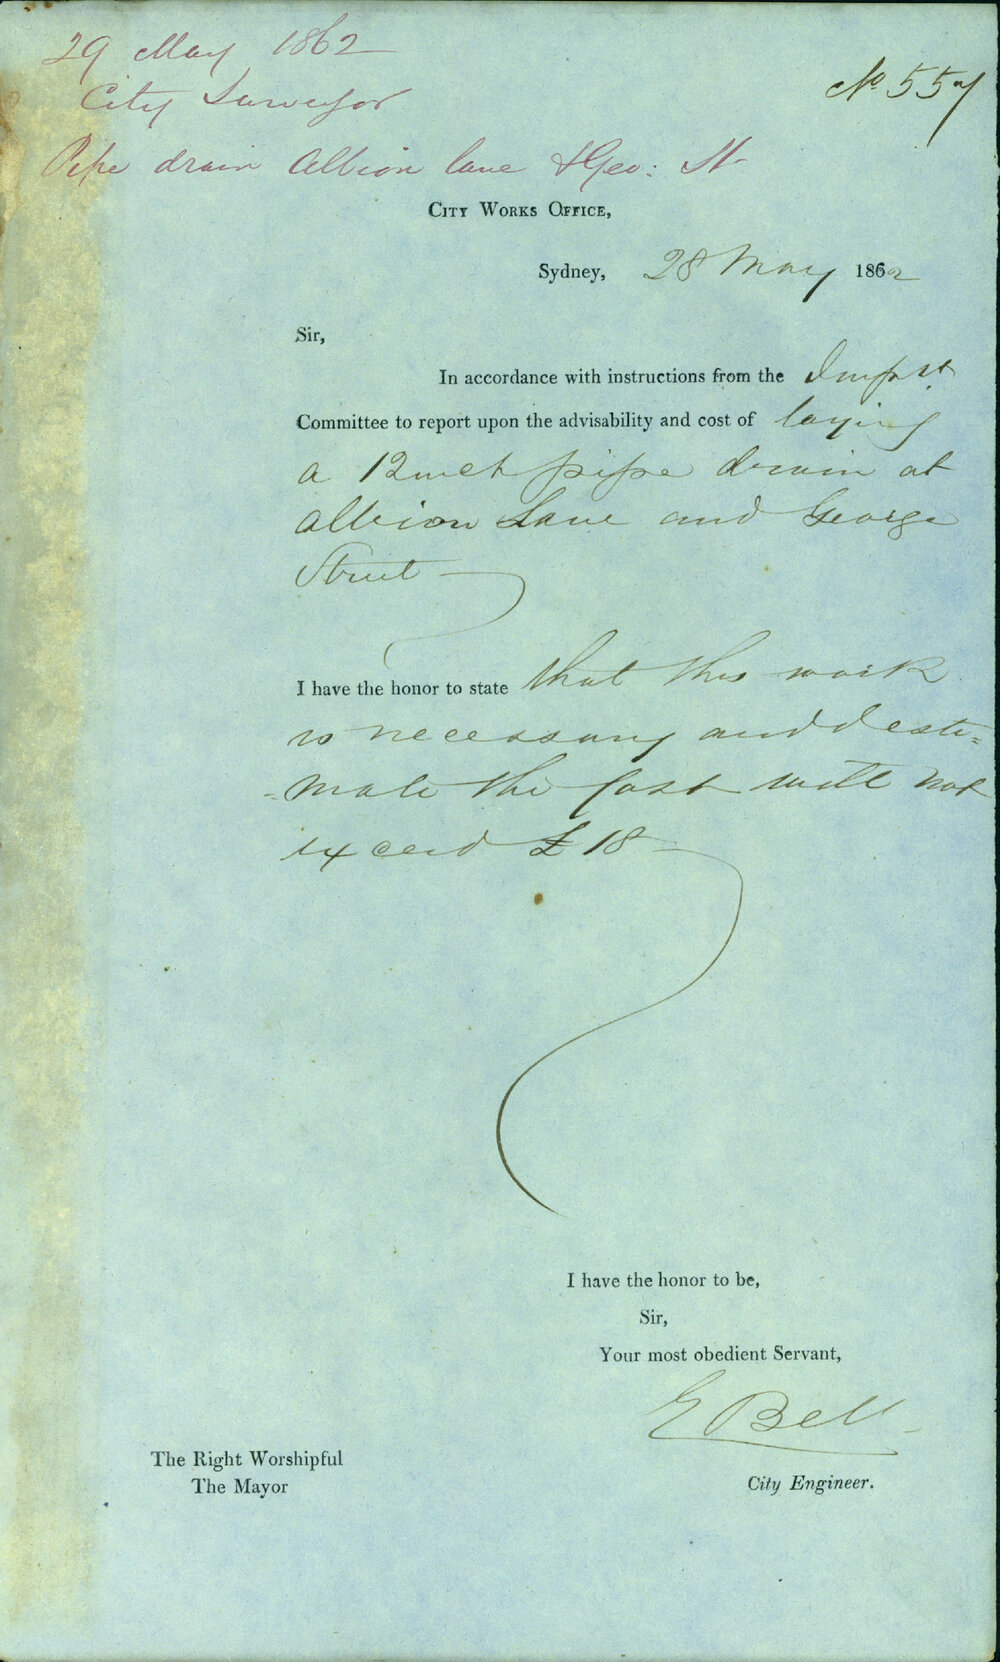 29 May 1862
City Surveyor
Pipe drain Albion lane & Geo: St
No 557
City Works Office,
Sydney, 28 May 1862
Sir,
In accordance with instructions from the Impt
Committee to report upon the advisability and cost of laying
a 12 inch pipe drain at
Albion Lane and George
Street
I have the honor to state that this work
is necessary and I esti=
-mate the Cost will not
exceed £18
I have the honor to be,
Sir,
Your most obedient Servant,
E Bell
The Right Worshipful
The Mayor
City Engineer.